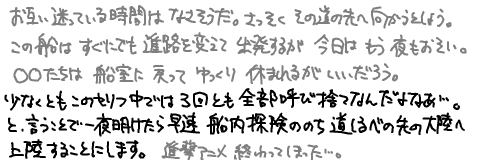 お互い迷っている時間は なさそうだ。さっそく その道の先へ向かうとしよう。
この船は すぐにでも 進路を変えて 出発するが 今日は もう 夜もおそい。
○○たちは 船室に 戻って ゆっくり 休まれるが いいだろう。
少なくとも このセリフ中では 3回とも 全部呼び捨てなんだよなあ…。
と、言うことで一夜明けたら早速 船内探険ののち 道しるべの先の大陸へ
上陸することにします。 進撃アニメ 終わってしまった…。